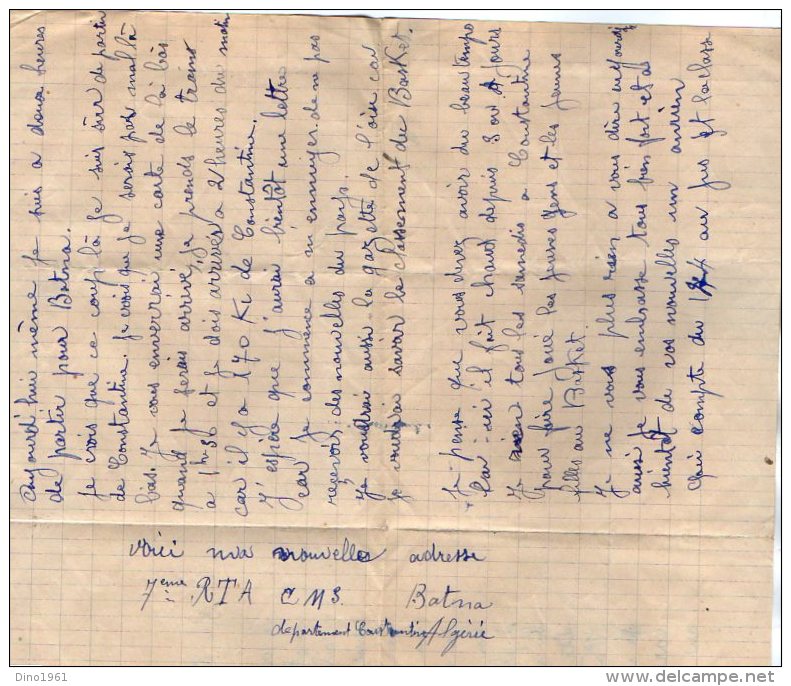 Aujourd'hui même je suis a douse heures
de partir pour Batna.
Je crois que ce coup là je suis sûr de partir
de Constantine. Je crois que je serais pas mal là
bas. Je vous enverrai une carte de là bas
quand je serai arrivé, je prends le train
a 1h36 et je dois arriver a 2 heures du matin
car il y a 170 Ki de Constantine.
J'espère que j'aurai bientôt une lettre
car je commence a m'ennuyer de ne pas
recevoir des nouvelles du pays.
Je voudrai aussi la gazette de l'oise car
je voudrai savoir le classement du Basket.
Je pense que vous devez avoir du beau temps
car ici il fait chaud depuis 3 ou 4 jours
Je vien tous les samedis a Constantine
pour faire joué les jeunes gens et les jeunes
filles au Basket.
Je ne vous plus rien a vous dire aujourd'hui
aussi je vous embrasse tous bien fort et a
bientôt de vos nouvelles un ancien
Qui compte du au jus et la classe
voici ma nouvelles adresse
7eme RTA C M S. Batna
departement Constantine Algérie
Dino1961
www.delcampe.net